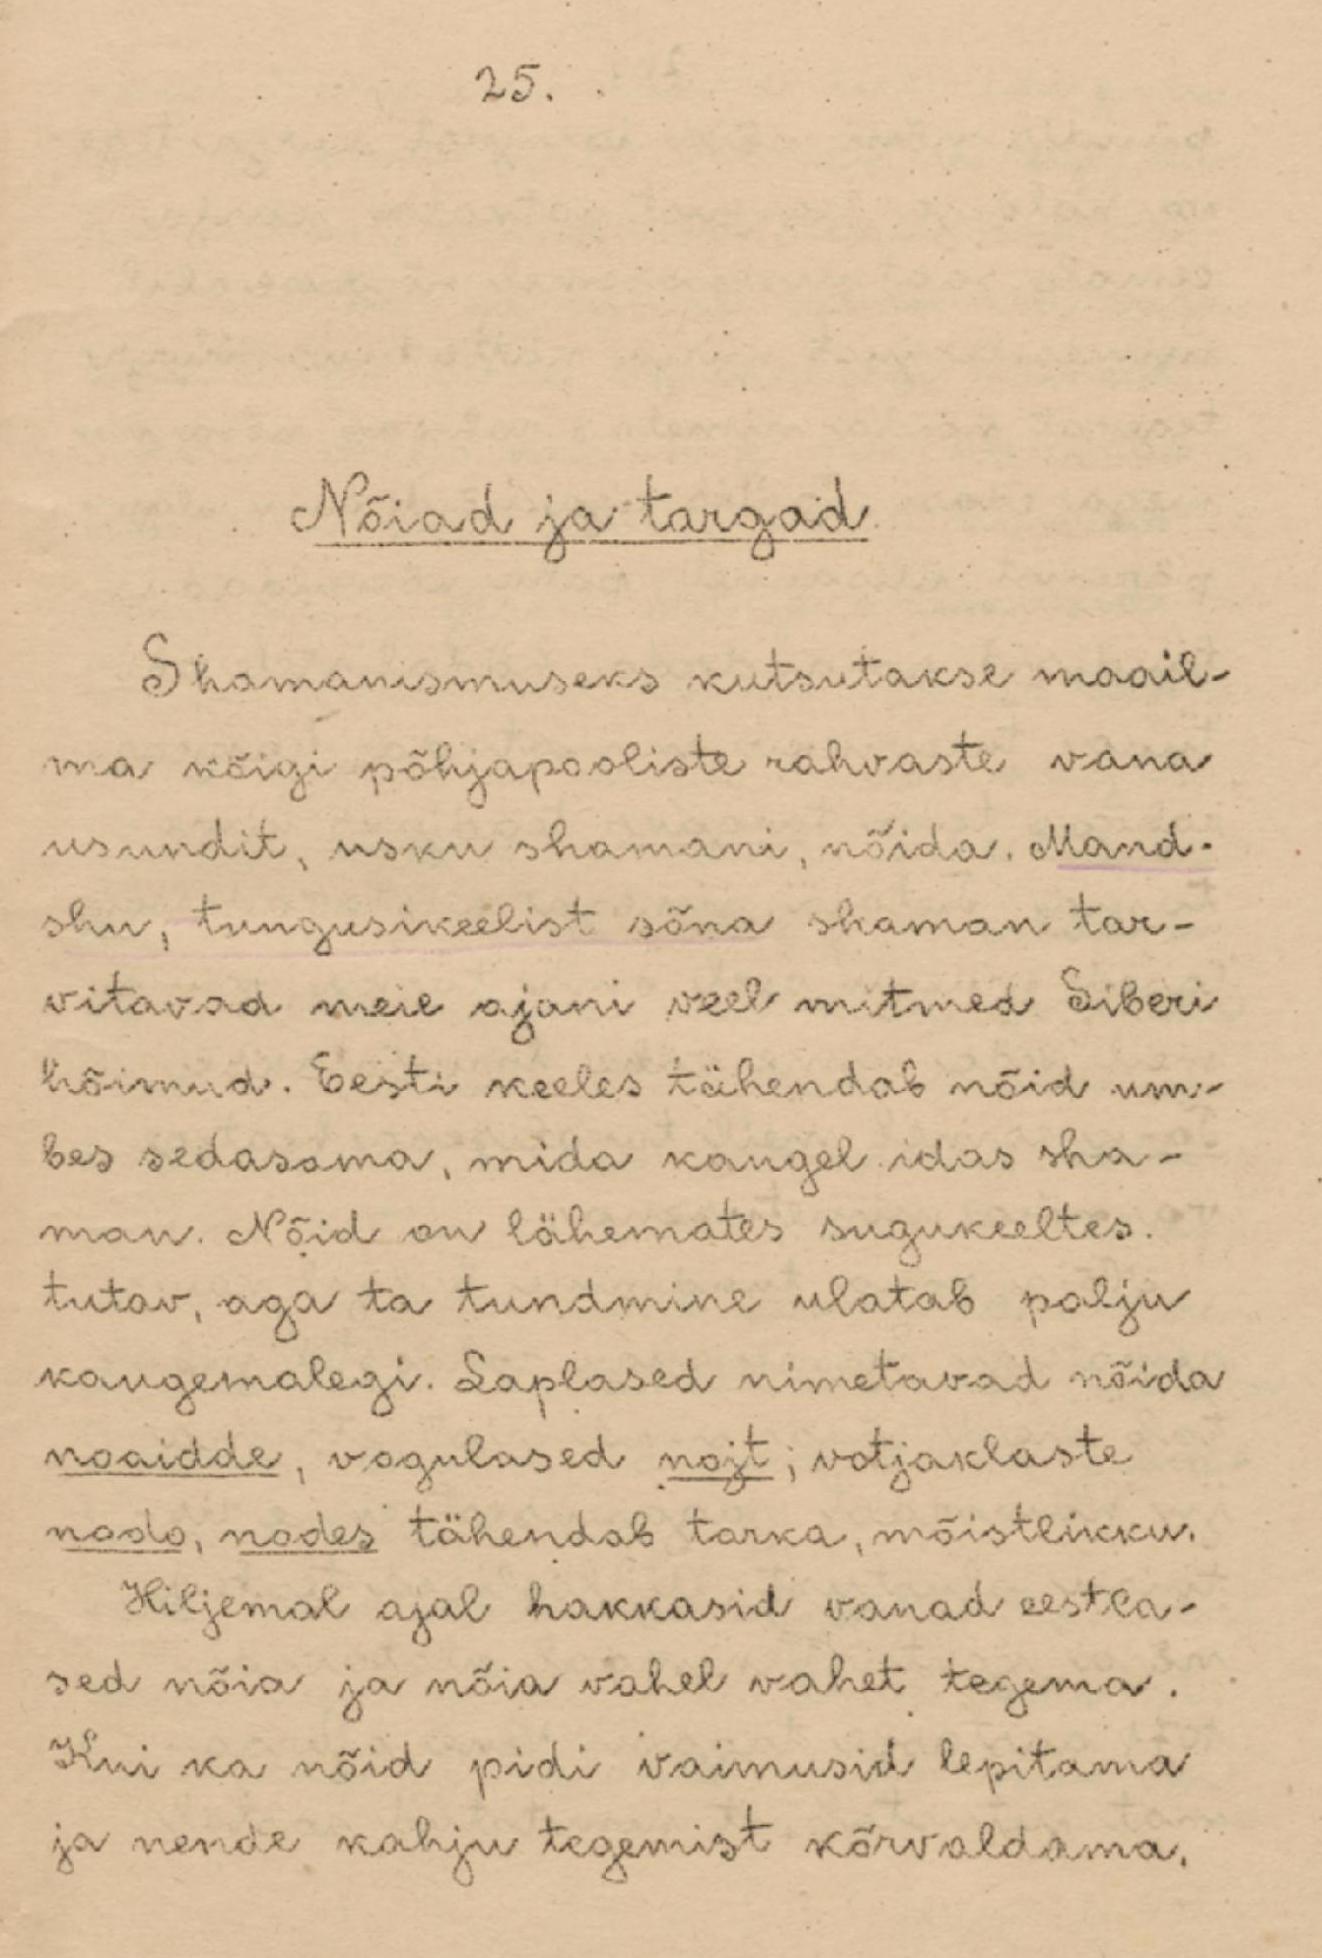 25.
Nõiad ja targad
Shamanismuseks kutsutakse maail-
ma kõigi põhjapooliste rahvaste vana
usundit, usku shamani, nõida. Mand-
shu, tungusikeelist sõna shaman tar-
vitavad meie ajani veel mitmed Siberi
hõimud. Eesti keeles tähendab nõid um-
bes sedasama, mida kaugel idas sha-
man. Nõid on lähemates sugukeeltes.
tutav, aga ta tundmine ulatab palju
kaugemalegi. Laplased nimetavad nõida
noaidde, vogulased nojt; votjaklaste
nodo, nodes tähendab tarka, mõistlikku.
Hiljemal ajal hakkasid vanad eestla-
sed nõia ja nõia vahel vahet tegema.
Kui ka nõid pidi vaimusid lepitama
ja nende kahju tegemist kõrvaldama,